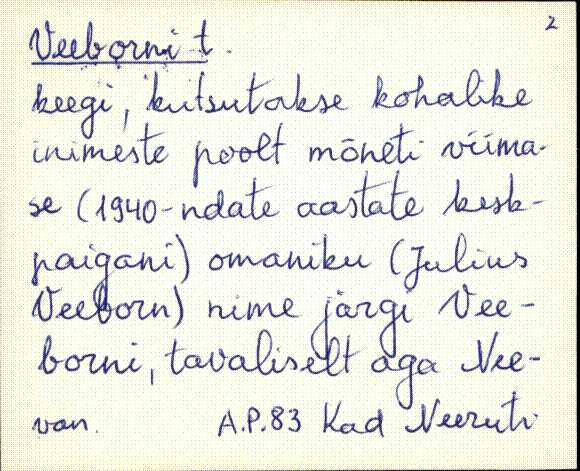 2
Veeborni t.
keegi, kutsutakse kohalike
inimeste poolt mõneti viima-
se (1940-ndate aastate kesk-
paigani) omaniku (Julius
Veeborn) nime järgi Vee-
borni, tavaliselt aga Nee-
van. A.P.83 Kad Neeruti